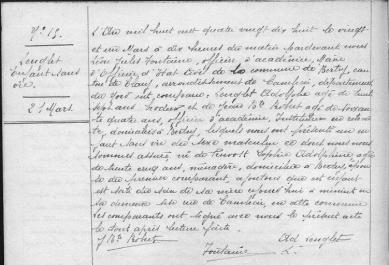 N° 15.
Lenglet
Enfant sans
vie.
21 Mars.
L'An mil huit cent quatre vingt dix huit le vingt
et un Mars à dix heures du matin pardevant nous
Léon Jules Fontaine, officier d'académie, Maire
d'Officier d'Etat Civil de la commune de Bertry, can
ton de Clary, arrondissement de Cambrai, département
du Nord ont comparu: Lenglet Adolphe âgé de
sept ans, et de Jean Bte Robet âgé de soixan
te quatre ans, officier d'académie, Instituteur en retrai
te, domiciliés à Bertry, lesquels nous ont présenté un en
fant sans vie du sexe masculin ce dont nous nous
sommes assuré né de Sophie Adolphine âgée
de trente cinq ans, ménagère, domiciliée à Bertry,
du premier comparant, ajoutons que cet enfant
est sorti du sein de sa mère à minuit en
sa demeure rue de Cambrai, en cette commune
Les comparants ont signé avec nous le présent acte
le tout après lecture faite.
J Bte Robet
Ad Lenglet
Fontaine L.